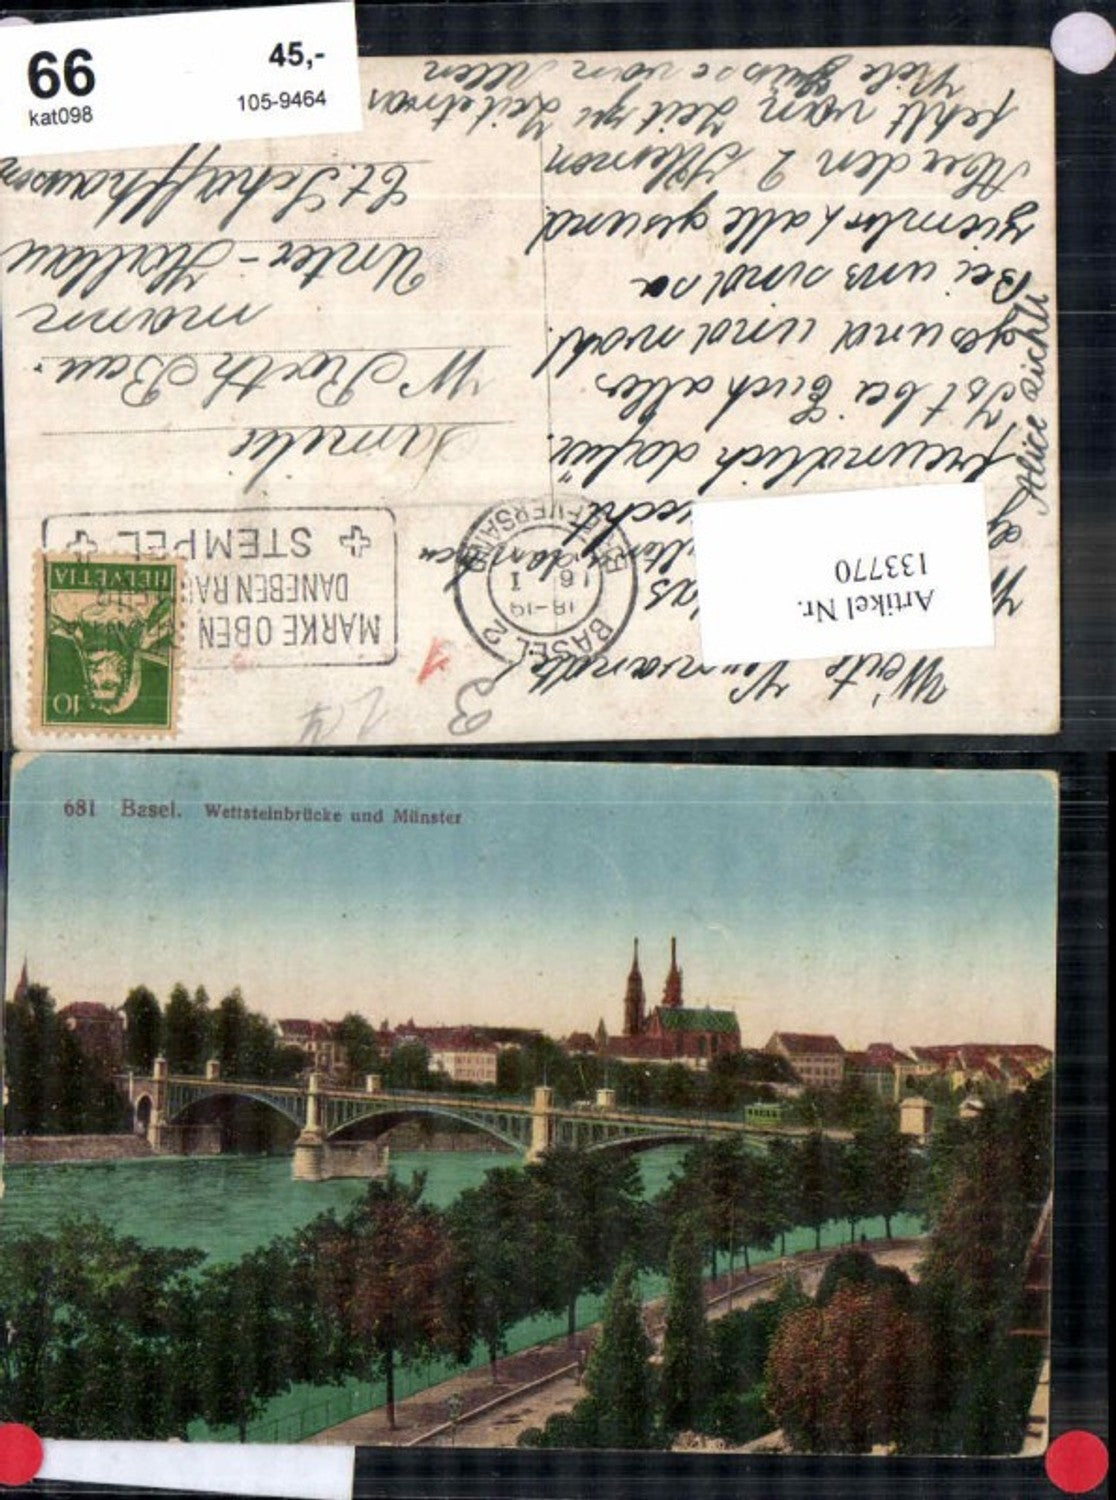 66
45,-
kat098
105-9464
Werte Verwandte!
Artikel Nr.
133770
das
freundlich dafür.
Ist bei Euch alles
gesund und wohl.
Bei uns sind so
ziemlich alle gesund
Aber den 2 Kleinen
fehlt von Zeit zu Zeit etwas
Viele Grüsse von Allen
Alice
BASEL 2
18-19
16. I
BRIEFVERSAND
MARKE OBEN
DANEBEN
STEMPEL
10
HELVETIA
Familie
W Roth Bau-
mann
Unter-Hallau
Ct. Schaffhausen
681 Basel. Wettsteinbrücke und Münster